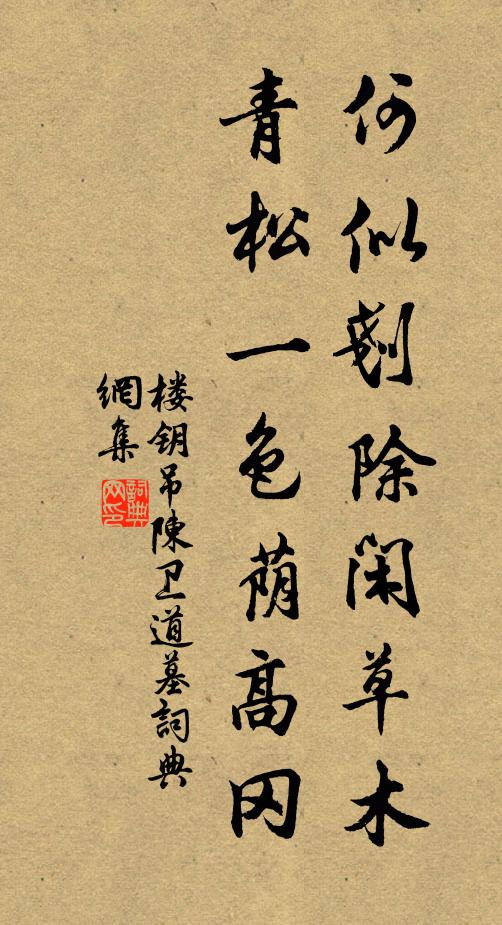 何似剗除闲草木
青松一色荫高冈
楼钥吊陳卫道墓詞典
網集
詞典
网印